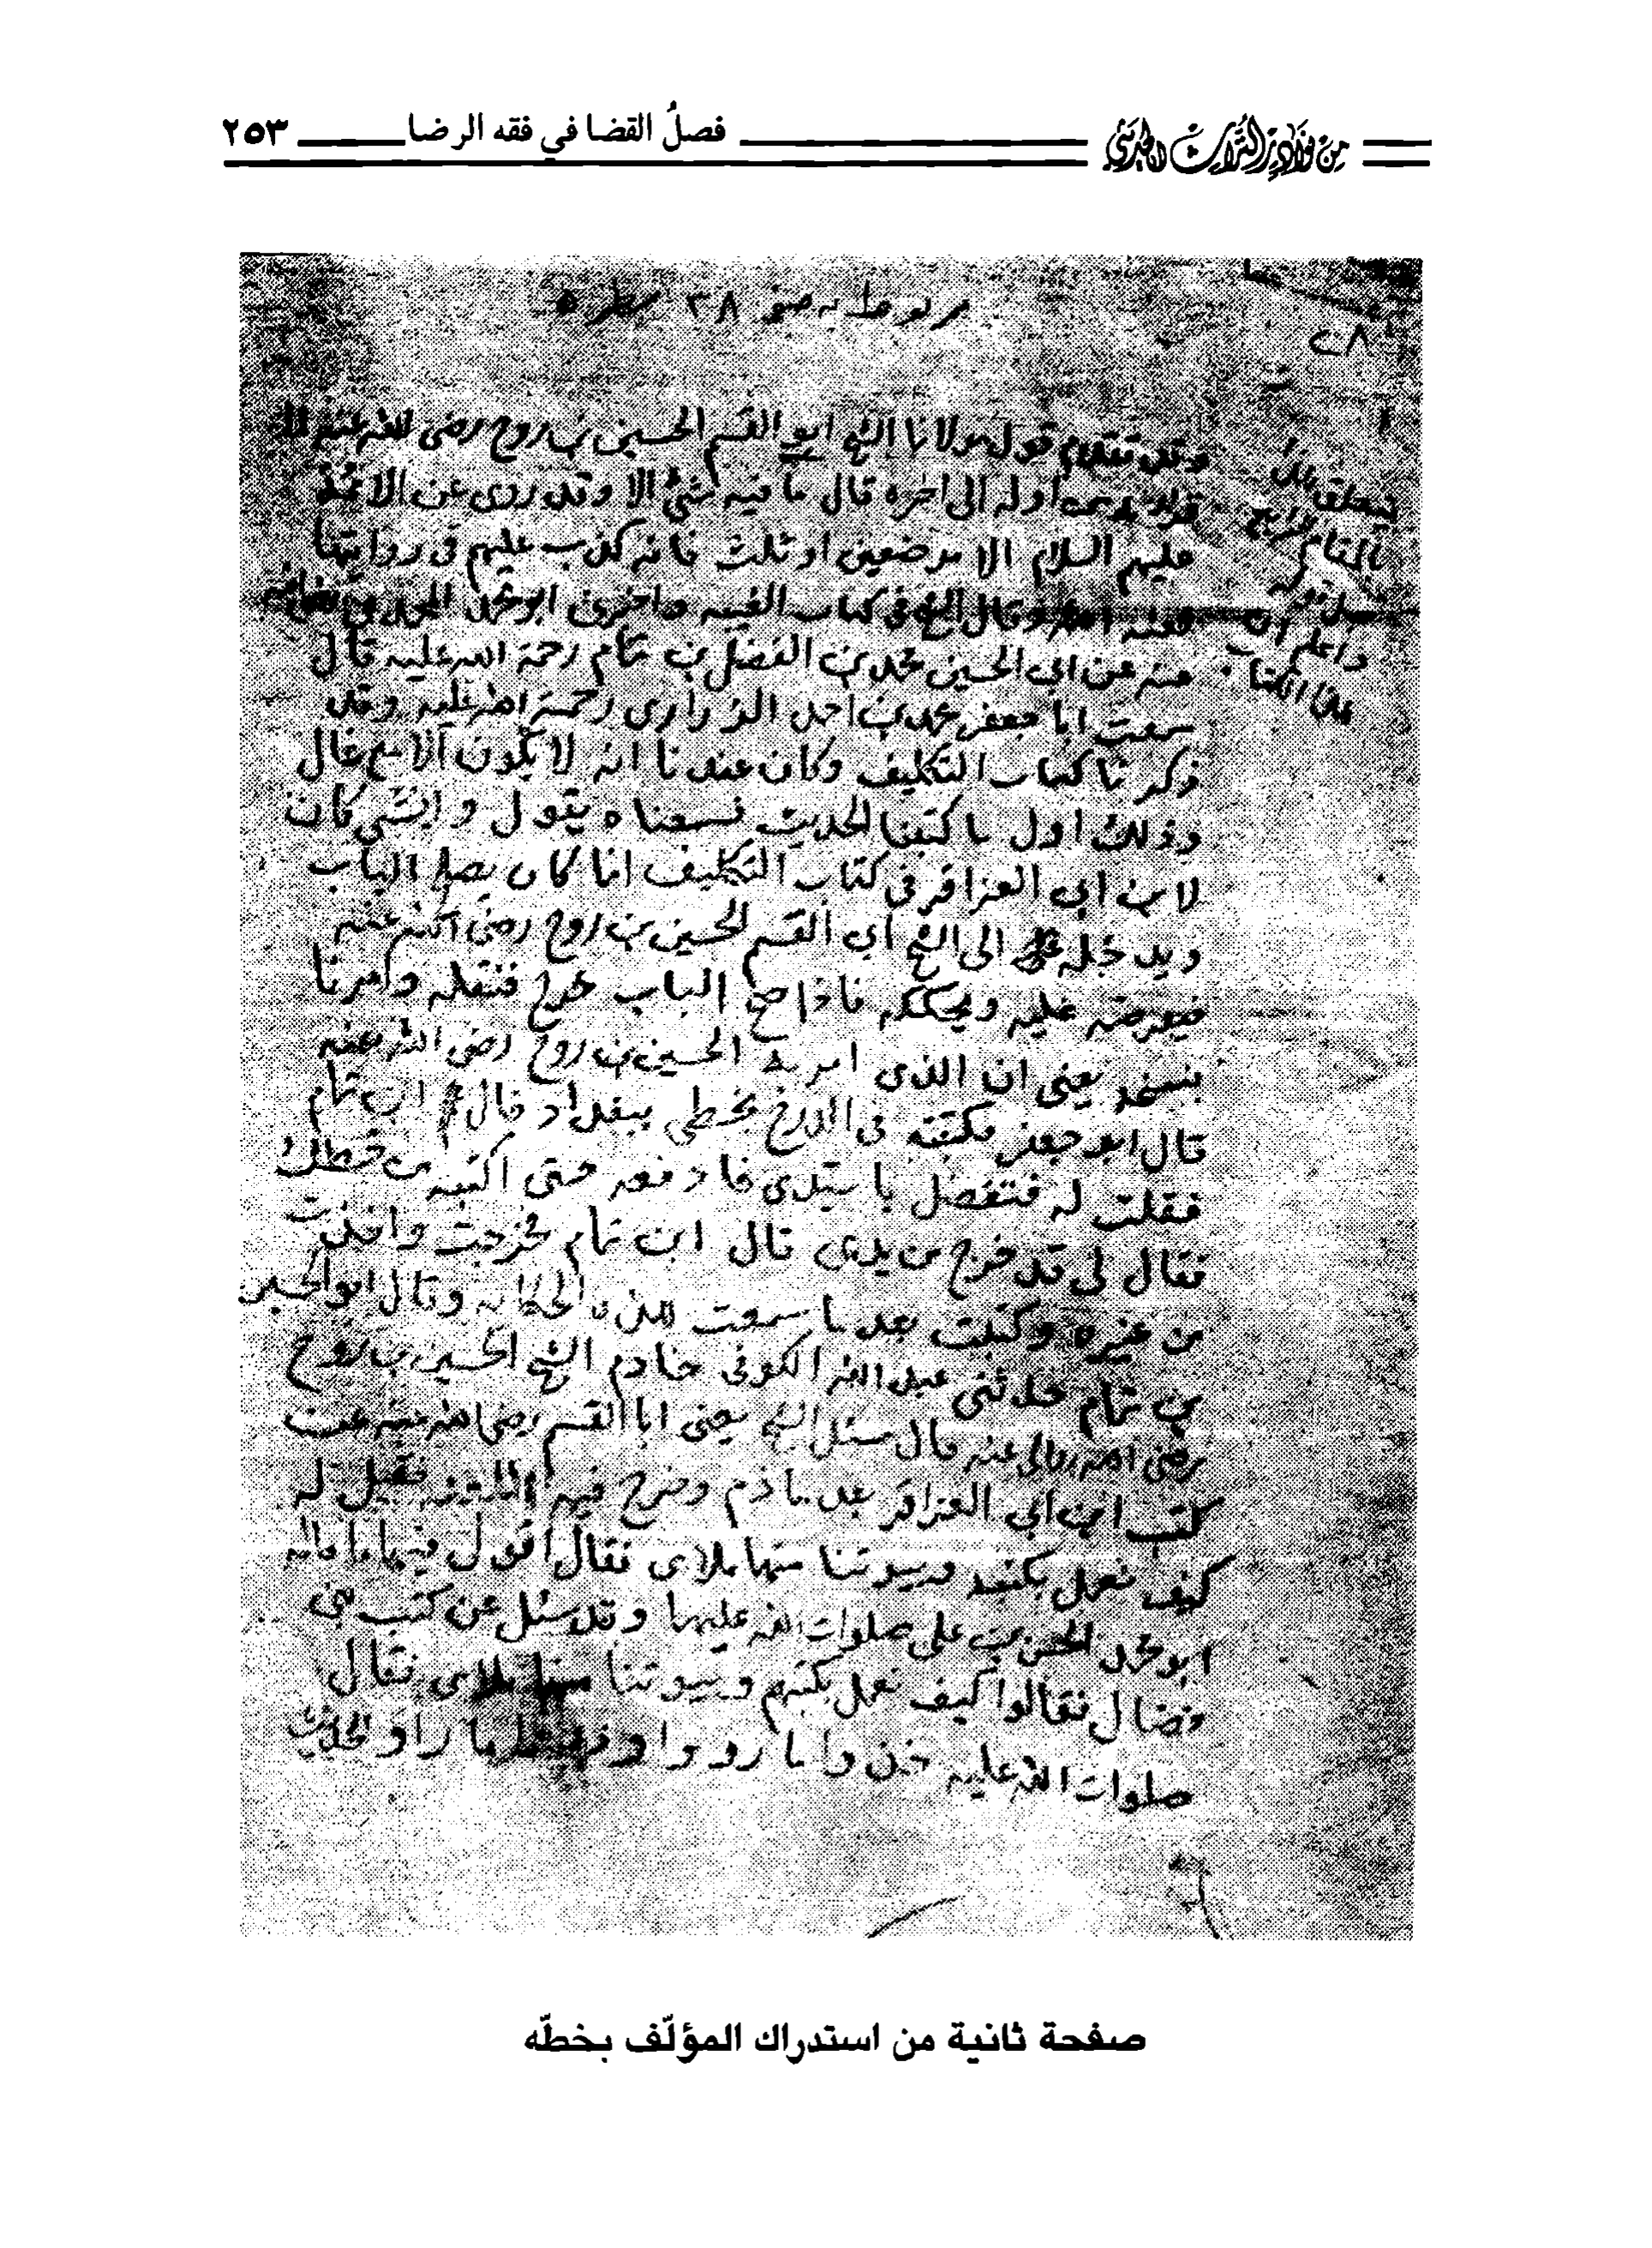 فصلُ القضا في فقه الرضا ٢٥٣
مربوط به صفحه ٣٨ سطر ٥
وقد تقدم قول مولانا الشيخ ابو القسم الحسين بن روح رضى الله عنه
اوله الى اخره قال ما فيه شئ الا وقد روى عن الائمة
عليهم السلام الا موضعين او ثلث فانه كذب عليهم فى روايتها
وقال الشيخ فى كتاب الغيبه واخبرنى ابو محمد المحمدى رضى الله
عنه عن ابى الحسين محمد بن الفضل بن تمام رحمة الله عليه قال
سمعت ابا جعفر محمد بن احمد الزرارى رحمة الله عليه وقد
ذكرنا كتاب التكليف وكان عندنا انه لا يكون الا مع غال
وذلك اول ما كتبنا الحديث فسمعناه يقول وايش كان
لابن ابى العزاقر فى كتاب التكليف انما كان يصلح الباب
ويدخله الى الشيخ ابى القسم الحسين بن روح رضى الله عنه
فيعرضه عليه ويحككه فاذا صح الباب خرج فنقله وامرنا
بنسخه يعنى ان الذى امر به الحسين بن روح رضى الله عنه
قال ابو جعفر فكتبته فى الادرج بخطى ببغداد قال ابن تمام
فقلت له فتفضل يا سيدى فادفعه حتى اكتبه من خطك
فقال لى قد خرج من يدى قال ابن تمام فخرجت واخذت
من غيره وكتبت بعد ما سمعت هذه الحكايه وقال ابو الحسين
بن تمام حدثنى عبد الله الكوفى خادم الشيخ الحسين بن روح
رضى الله تعالى عنه قال سئل الشيخ يعنى ابا القسم رضى الله عنه عن
كتب ابن ابى العزاقر بعد ما ذم وخرج فيه اللعنه فقيل له
كيف نعمل بكتبه وبيوتنا منها ملاى فقال اقول فيها ما قاله
ابو محمد الحسن بن على صلوات الله عليهما وقد سئل عن كتب بنى
فضال فقالوا كيف نعمل بكتبهم وبيوتنا منها ملاى فقال
صلوات الله عليه خذوا ما رووا وذروا ما راوا الحديث
يتعلق بذيل
واعلم ان
هذا الكتاب
صفحة ثانية من استدراك المؤلّف بخطّه